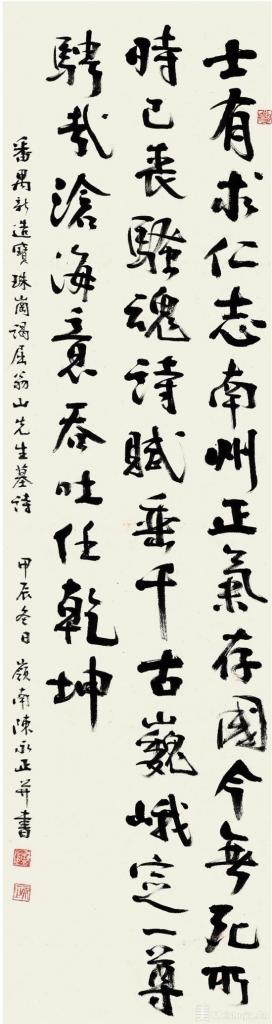 士有求仁志南州正氣存國今無死所
時已喪騷魂詩賦垂千古巍峨定一尊
騁哉滄海意吞吐任乾坤
番禺新造寶珠崗謁屈翁山先生墓詩 甲辰冬日 嶺南陳永正并書